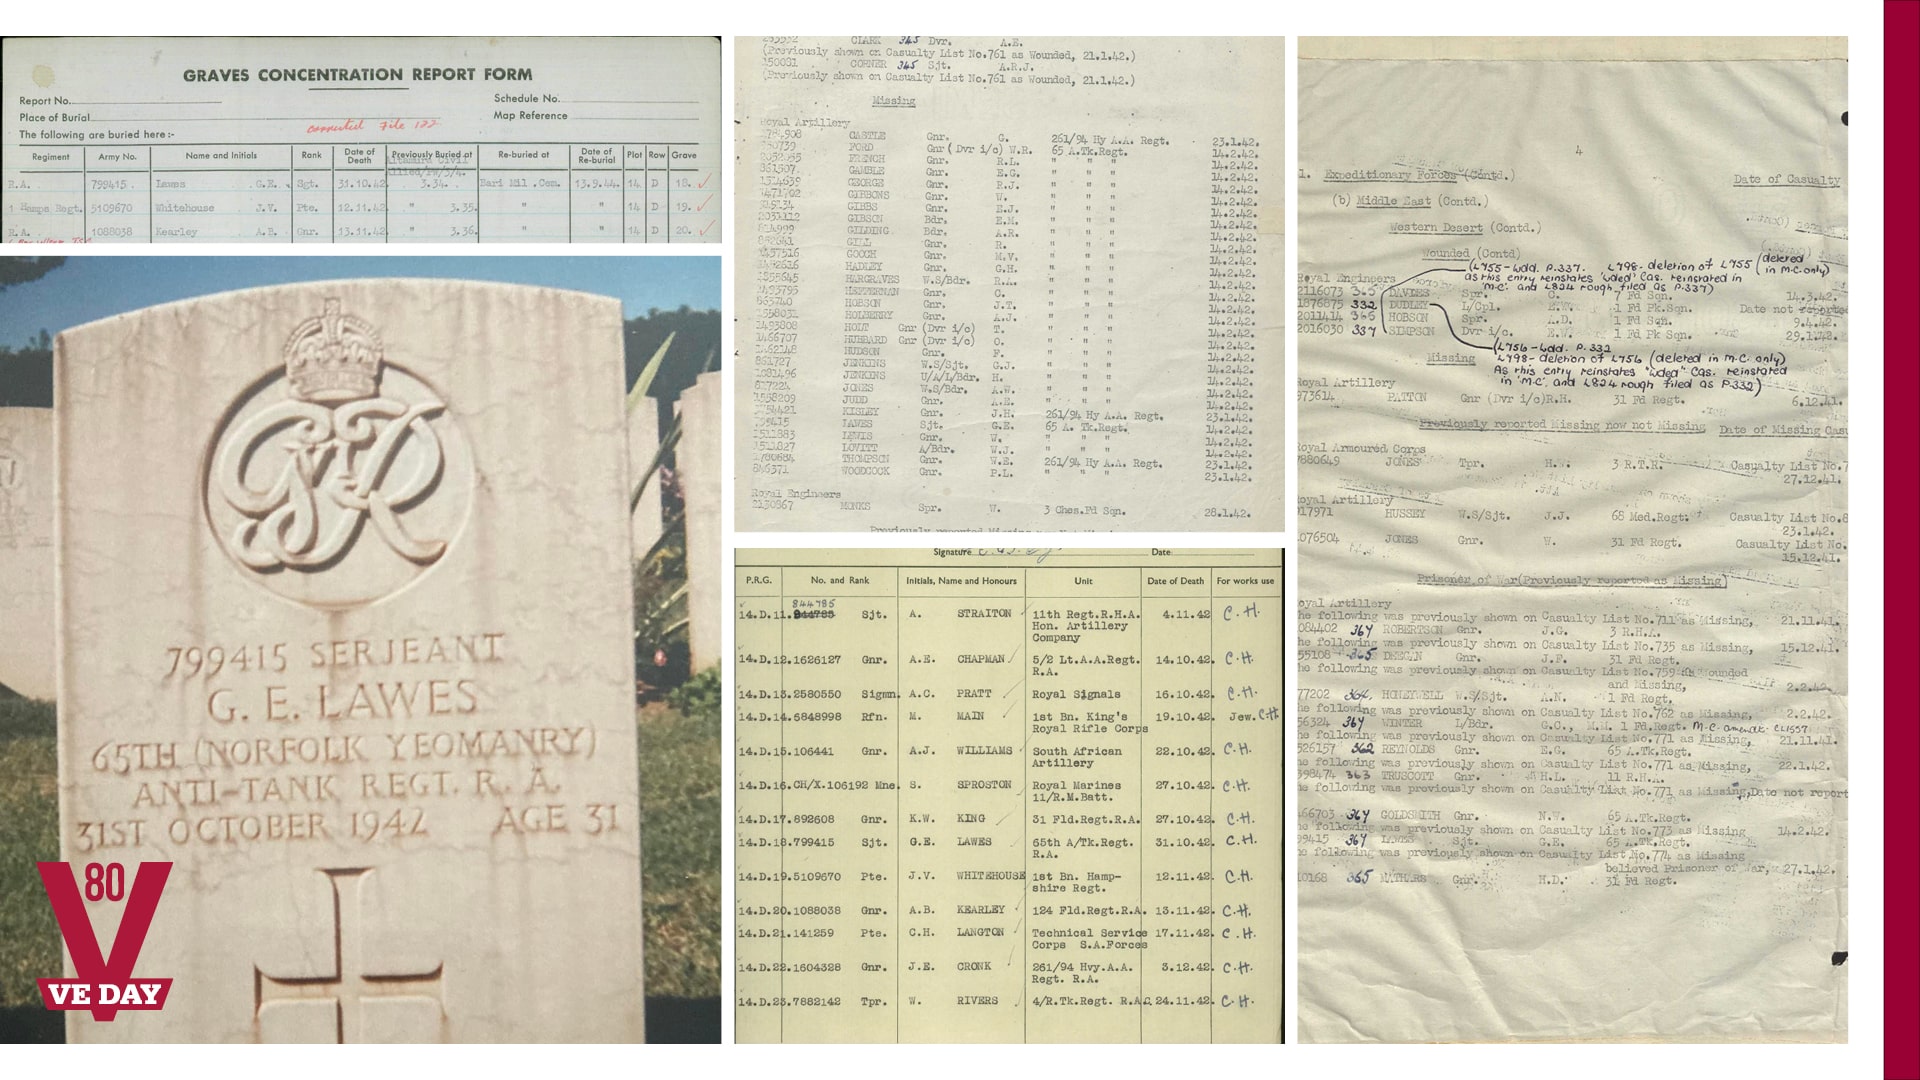 GRAVES CONCENTRATION REPORT FORM
Report No.
Schedule No.
Place of Burial
Map Reference
connected File 122
The following are buried here :-
Regiment Army No. Name and Initials Rank Date of Death Previously Buried at Re-buried at Date of Re-burial Plot Row Grave
R.A. 799415 Lawes G.E. Sgt. 31.10.42 3.34. Bari Mil .Cem. 13.9.44. 14 D 18.
1 Hamps Regt. 5109670 Whitehouse J.V. Pte. 12.11.42 " 3.35. " " 14 D 19.
R.A. 1088038 Kearley A.B. Gnr. 13.11.42 " 3.36. " " 14 D 20.
799415 SERJEANT
G. E. LAWES
65TH (NORFOLK YEOMANRY)
ANTI-TANK REGT. R. A.
31ST OCTOBER 1942 AGE 31
80
VE DAY
CLARK 345 Dvr. A.E.
(Previously shown on Casualty List No.761 as Wounded, 21.1.42.)
CORNER 345 Sjt. A.R.J.
(Previously shown on Casualty List No.761 as Wounded, 21.1.42.)
Missing
Royal Artillery
CASTLE Gnr. G. 261/94 Hy A.A. Regt. 23.1.42.
FORD Gnr (Dvr i/c) W.R. 65 A.Tk.Regt. 14.2.42.
FRENCH Gnr. R.L. " " " 14.2.42.
GAMBLE Gnr. E.G. " " " 14.2.42.
GEORGE Gnr. R.J. " " " 14.2.42.
GIBBONS Gnr. W. " " " 14.2.42.
GIBBS Gnr. E.J. " " " 14.2.42.
GIBSON Bdr. E.M. " " " 14.2.42.
GILDING Bdr. A.R. " " " 14.2.42.
GILL Gnr. R. " " " 14.2.42.
GOOCH Gnr. M.V. " " " 14.2.42.
HADLEY Gnr. G.H. " " " 14.2.42.
HARGRAVES W.S/Bdr. R.A. " " " 14.2.42.
HEFFERNAN Gnr. " " " 14.2.42.
HOBSON Gnr. J.T. " " " 14.2.42.
HOLBERRY Gnr. A.J. " " " 14.2.42.
HOLT Gnr (Dvr i/c) T. " " " 14.2.42.
HUBBARD Gnr (Dvr i/c) O. " " " 14.2.42.
HUDSON Gnr. F. " " " 14.2.42.
JENKINS W.S/Sjt. G.J. " " " 14.2.42.
JENKINS U/A/L/Bdr. H. " " " 14.2.42.
JONES W.S/Bdr. A.W. " " " 14.2.42.
JUDD Gnr. A.E. " " " 14.2.42.
KISLEY Gnr. J.H. 261/94 Hy A.A. Regt. 23.1.42.
LAWES Sjt. G.E. 65 A. Tk.Regt. 14.2.42.
LEWIS Gnr. W. " " " 14.2.42.
LOVITT A/Bdr. W.J. " " " 14.2.42.
THOMPSON Gnr. W.E. 261/94 Hy A.A. Regt. 23.1.42.
WOODCOCK Gnr. P.L. " " " 23.1.42.
Royal Engineers
MONKS Spr. W. 3 Ches.Fd Sqn. 28.1.42.
Signature Date
P.R.G. No. and Rank Initials, Name and Honours Unit Date of Death For works use
844785
14.D.11. Sjt. A. STRAITON 11th Regt.R.H.A. 4.11.42 C.H.
Hon. Artillery
Company
14.D.12.1626127 Gnr. A.E. CHAPMAN 5/2 Lt.A.A.Regt. 14.10.42. C.H.
R.A.
14.D.13.2580550 Sigmn. A.C. PRATT Royal Signals 16.10.42. C.H.
14.D.14.6848998 Rfn. M. MAIN 1st Bn. King's 19.10.42. Jew. C.H.
Royal Rifle Corps
14.D.15.106441 Gnr. A.J. WILLIAMS South African 22.10.42. C.H.
Artillery
14.D.16.CH/X.106192 Mne. S. SPROSTON Royal Marines 27.10.42. C.H.
11/R.M.Batt.
14.D.17.892608 Gnr. K.W. KING 31 Fld.Regt.R.A. 27.10.42. C.H.
14.D.18.799415 Sjt. G.E. LAWES 65th A/Tk.Regt. 31.10.42. C.H.
R.A.
14.D.19.5109670 Pte. J.V. WHITEHOUSE 1st Bn. Hamp- 12.11.42. C.H.
shire Regt.
14.D.20.1088038 Gnr. A.B. KEARLEY 124 Fld.Regt.R.A. 13.11.42. C.H.
14.D.21.141259 Pte. C.H. LANGTON Technical Service 17.11.42. C.H.
Corps S.A.Forces
14.D.22.1604328 Gnr. J.E. CRONK 261/94 Hvy.A.A. 3.12.42. C.H.
Regt. R.A.
14.D.23.7882142 Tpr. W. RIVERS 4/R.Tk.Regt. R.A.C 24.11.42. C.H.
4
1. Expeditionary Forces (Contd.) Date of Casualty
(b) Middle East (Contd.)
Western Desert (Contd.)
Wounded (Contd)
(L755-wdd. P.337. L798- deletion of L755 (deleted in M.C. only)
as this entry reinstates 'wded' Cas. reinstated in
'M.C.' and L824 rough filed as P.337)
Royal Engineers
2116073 365 DAVIES Spr. C. 7 Fd Sqn. 14.3.42.
1876875 332 DUDLEY L/Cpl. E.W. 1 Fd Pk.Sqn. Date not reported
2011414 365 HOBSON Spr. A.D. 1 Fd Sqn. 9.4.42.
2016030 337 SIMPSON Dvr i/c. W. 1 Fd Pk Sqn. 29.1.42.
(L756-wdd. P.332
Missing L798- deletion of L756 (deleted in M.C. only)
As this entry reinstates "wded" Cas. reinstated
in 'M.C.' and L824 rough filed as P332)
Royal Artillery
PATTON Gnr (Dvr i/c)R.H. 31 Fd Regt. 6.12.41.
Previously reported Missing now not Missing Date of Missing Cas
Royal Armoured Corps
7880649 JONES Tpr. H.W. 3 R.T.R. Casualty List No.7
27.12.41.
Royal Artillery
HUSSEY W.S/Sjt. J.J. 68 Med.Regt. Casualty List No.8
23.1.42.
JONES Gnr. W. 31 Fd Regt. Casualty List No.
15.12.41.
Prisoner of War(Previously reported as Missing)
oyal Artillery
he following was previously shown on Casualty List No.711 as Missing, 21.11.41.
084402 364 ROBERTSON Gnr. J.G. 3 R.H.A.
he following was previously shown on Casualty List No.735 as Missing, 15.12.41.
55108 365 Gnr. J.F. 31 Fd Regt.
he following was previously shown on Casualty List No.759 as Wounded
and Missing, 2.2.42.
77202 364 HONEYWELL W.S/Sjt. A.N. 1 Fd Regt.
he following was previously shown on Casualty List No.762 as Missing, 2.2.42.
56324 364 WINTER L/Bdr. G.C., M.M. 1 Fd.Regt. M.C. amendt. CL1557
he following was previously shown on Casualty List No.771 as Missing, 21.11.41.
526157 362 REYNOLDS Gnr. E.G. 65 A.Tk.Regt.
he following was previously shown on Casualty List No.771 as Missing, 22.1.42.
398474 363 TRUSCOTT Gnr. H.L. 11 R.H.A.
he following was previously shown on Casualty List No.771 as Missing, Date not report
66703 364 GOLDSMITH Gnr. N.W. 65 A.Tk.Regt.
he following was previously shown on Casualty List No.773 as Missing 14.2.42.
99415 364 LAWES Sjt. G.E. 65 A.Tk.Regt.
he following was previously shown on Casualty List No.774 as Missing
believed Prisoner of War, 27.1.42.
10168 365 MATHARS Gnr. H.D. 31 Fd Regt.